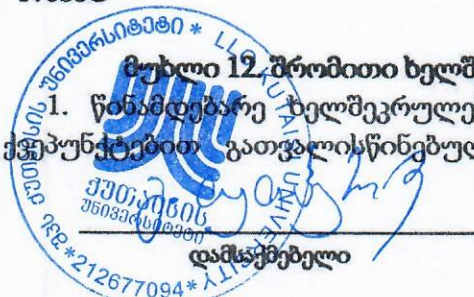 მუხლი 12. შრომითი ხელშ
1. წინამდებარე ხელშეკრულე
ქვეპუნქტებით გათვალისწინებულ
დამსაქმებელი
შპს ქუთაისის უნივერსიტეტი * LLC KUTAISI UNIVERSITY *212677094*
ქუთაისის
უნივერსიტეტი